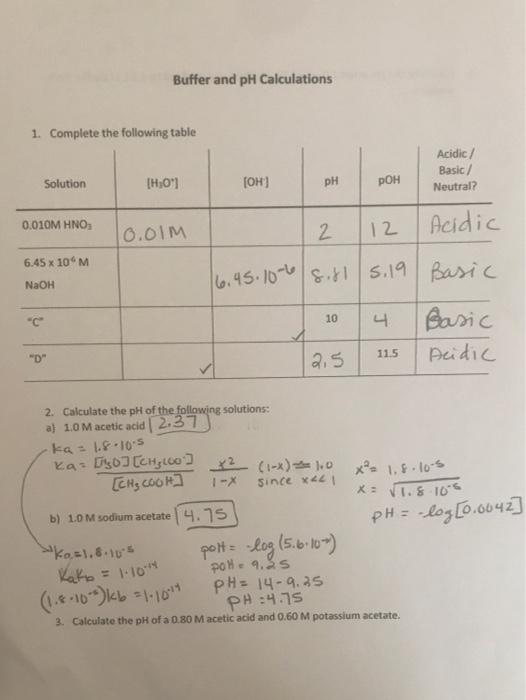 Buffer and pH Calculations
1. Complete the following table
Solution [H₃O⁺] [OH⁻] pH pOH Acidic / Basic / Neutral?
0.010M HNO₃ 0.01M 2 12 Acidic
6.45 x 10⁻⁶ M NaOH 6.45·10⁻⁶ 8.81 5.19 Basic
"C" 10 4 Basic
"D" 2.5 11.5 Acidic
2. Calculate the pH of the following solutions:
a) 1.0 M acetic acid 2.37
ka = 1.8·10⁻⁵
ka = [H₃O][CH₃COO⁻] / [CH₃COOH] x² / 1-x (1-x) ≈ 1.0 since x<<1 x² = 1.8·10⁻⁵
x = √1.8·10⁻⁵
pH = -log[0.0042]
b) 1.0 M sodium acetate 4.75
ka=1.8·10⁻⁵ pOH = -log(5.6·10
KaKb = 1·10⁻¹⁴ pOH = 9.25
(1.8·10⁻⁵)kb = 1·10⁻¹⁴ pH = 14-9.25
pH = 4.75
3. Calculate the pH of a 0.80 M acetic acid and 0.60 M potassium acetate.